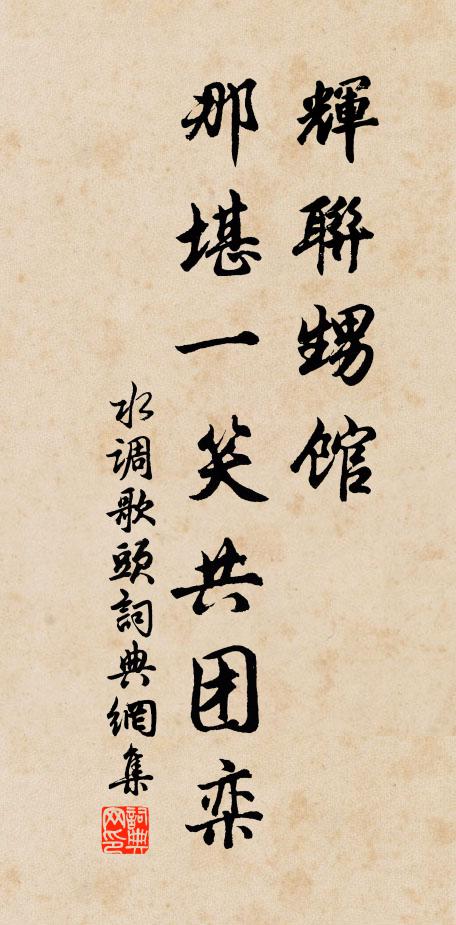 輝聯甥馆
那堪一笑共团栾
水调歌頭詞典網集
詞典网印